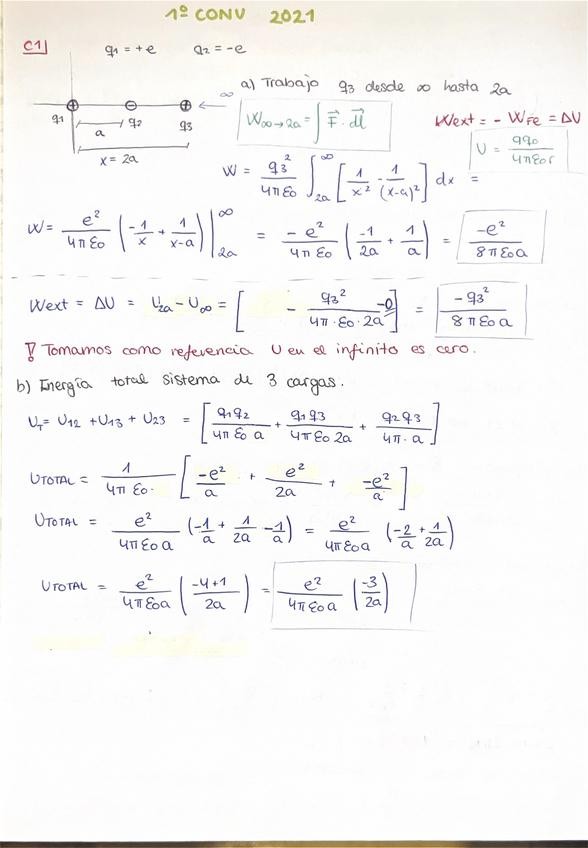 1º CONV 2021
C1 q1 = +e q2 = -e
a) Trabajo q3 desde ∞ hasta 2a
∞
q1 q2 q3
a
x = 2a
W∞→2a = ∫ F⃗ · dl⃗
Wext = - WFe = ΔU
U = qq0 / 4πε0r
W = q3² / 4πε0 ∫2a^∞ [ 1/x² - 1/(x-a)² ] dx =
W = e² / 4πε0 ( -1/x + 1/(x-a) ) |2a^∞ = -e² / 4πε0 ( -1/2a + 1/a ) = -e² / 8πε0a
Wext = ΔU = U2a - U∞ = [ - q3² / 4π·ε0·2a -0 ] = -q3² / 8πε0a
! Tomamos como referencia U en el infinito es cero.
b) Energía total sistema de 3 cargas.
UT = U12 + U13 + U23 = [ q1q2 / 4πε0a + q1q3 / 4πε02a + q2q3 / 4π·a ]
UTOTAL = 1 / 4πε0· [ -e²/a + e²/2a + -e²/a ]
UTOTAL = e² / 4πε0a ( -1/a + 1/2a - 1/a ) = e² / 4πε0a ( -2/a + 1/2a )
UTOTAL = e² / 4πε0a ( -4+1 / 2a ) = e² / 4πε0a ( -3/2a )